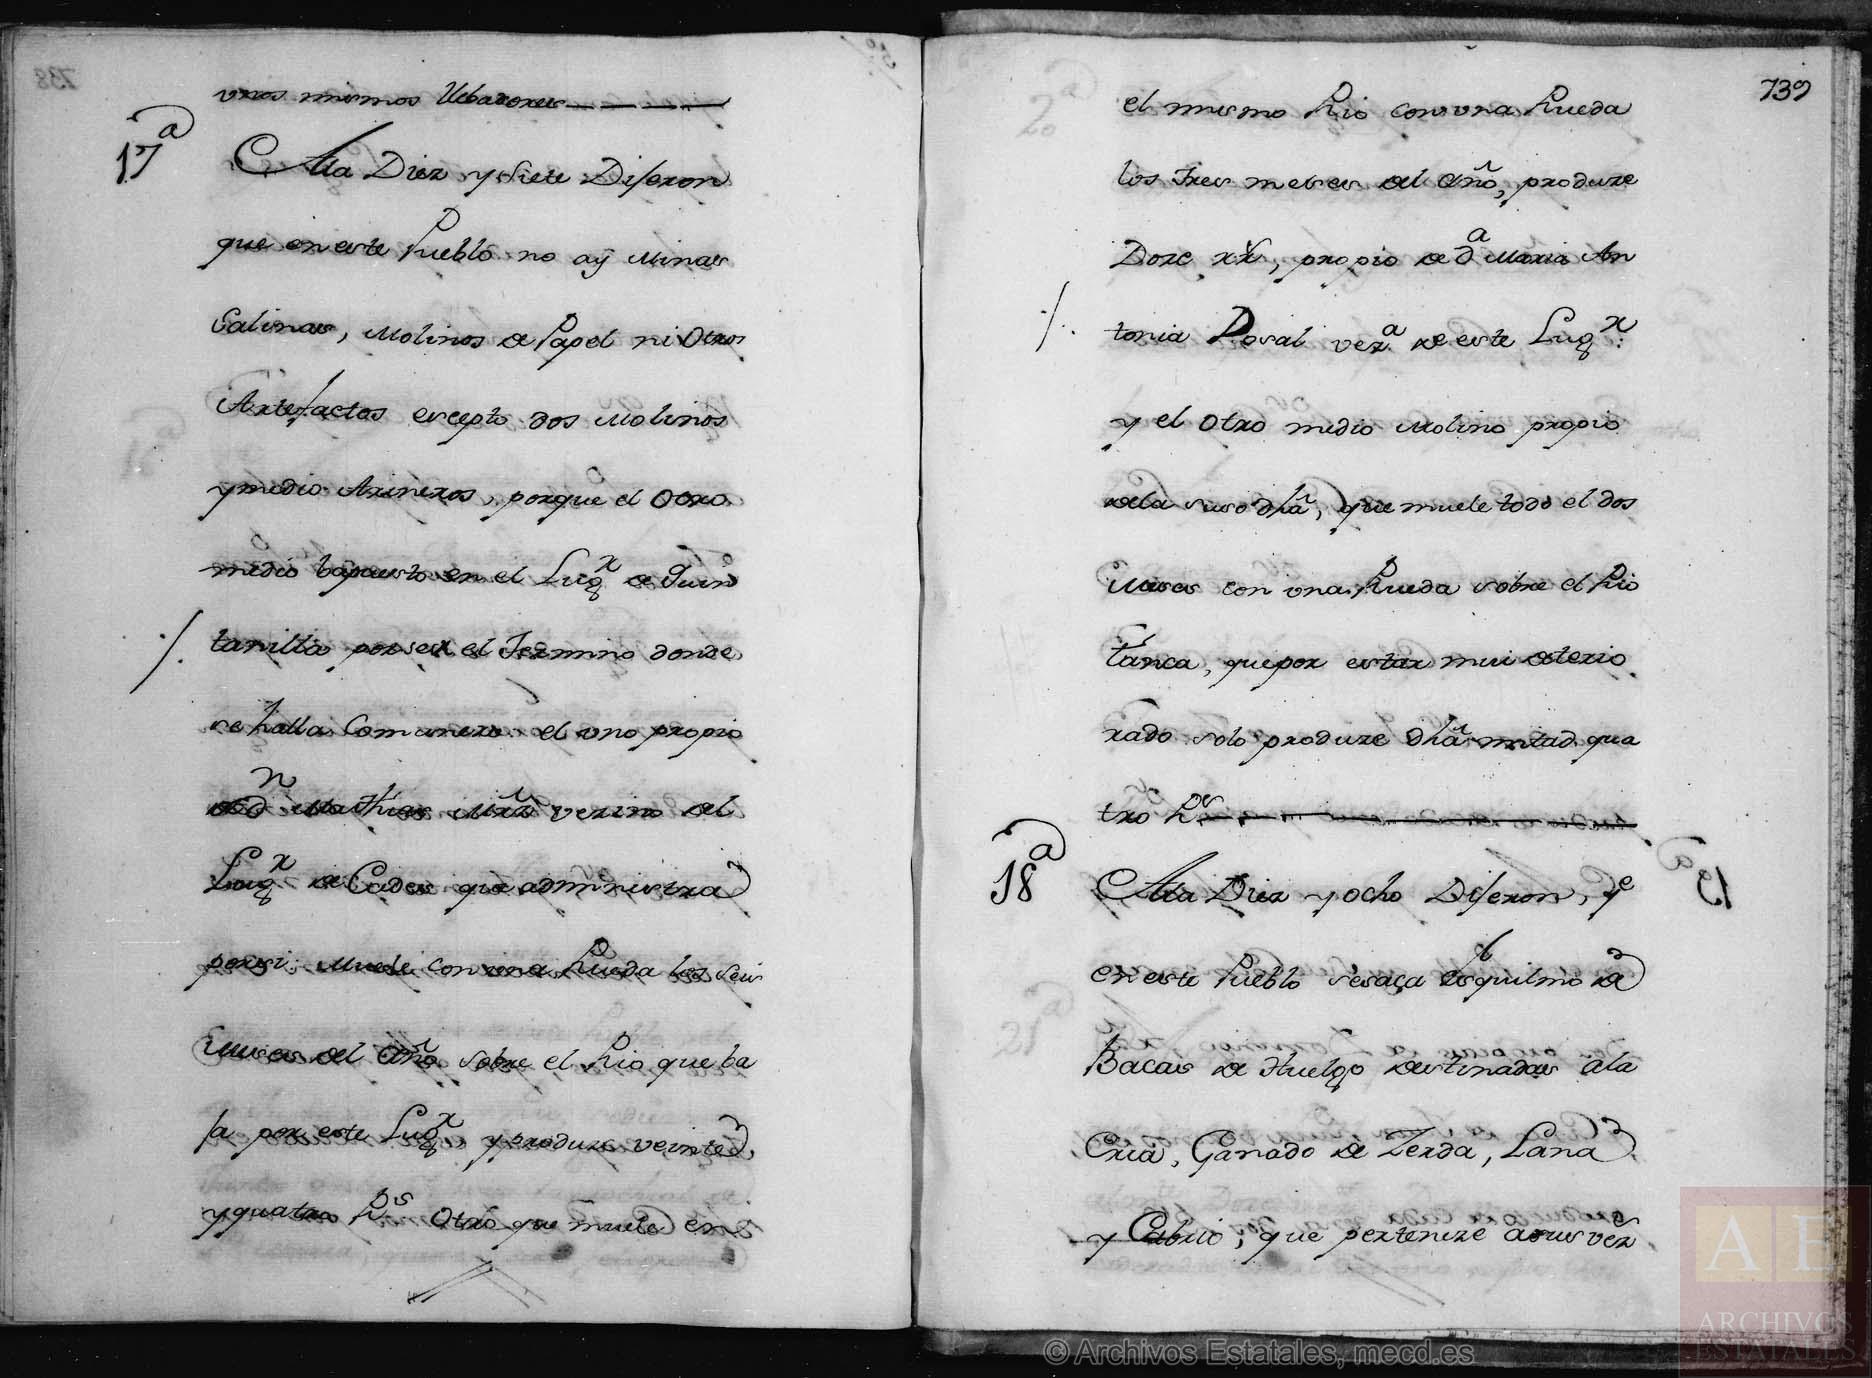 unos mismos
17ª
A la Diez y siete Dijeron
que en este Pueblo no aÿ Minas
Salinas, Molinos de Papel ni Otros
Artefactos escepto dos Molinos
y medio Arineros, porque el Otro
medio ba puesto en el Lugr de Quin
tanilla por ser el Termino donde
se halla Comunero el uno propio
de dn Mathias Mrz vezino del
Lugr de Cades que administra
por si: Muele con una Rueda los seis
Meses del Año sobre el Rio que ba
ja por este Lugr, y produze veinte
y quatro Rs Otro que muele en
739
el mismo Rio con una Rueda
los tres meses del Año, produze
Doze rs, propio de da Maria An
tonia Dosal veza de este Lugr:
y el Otro medio Molino propio
dela suso dha, que muele todo el dos
Meses con una Rueda sobre el Rio
Tanea, que por estar mui deterio
rado solo produze dha mitad qua
tro Rs
18ª
A la Diez y ocho Dijeron, qe
en este Pueblo se saca esquilmo de
Bacas de Huelgo destinadas ala
Cria, Ganado de Zerda, Lana
y Cabrio, que perteneze a sus vez
© Archivos Estatales, mecd.es
AE
ARCHIVOS
ESTATALES